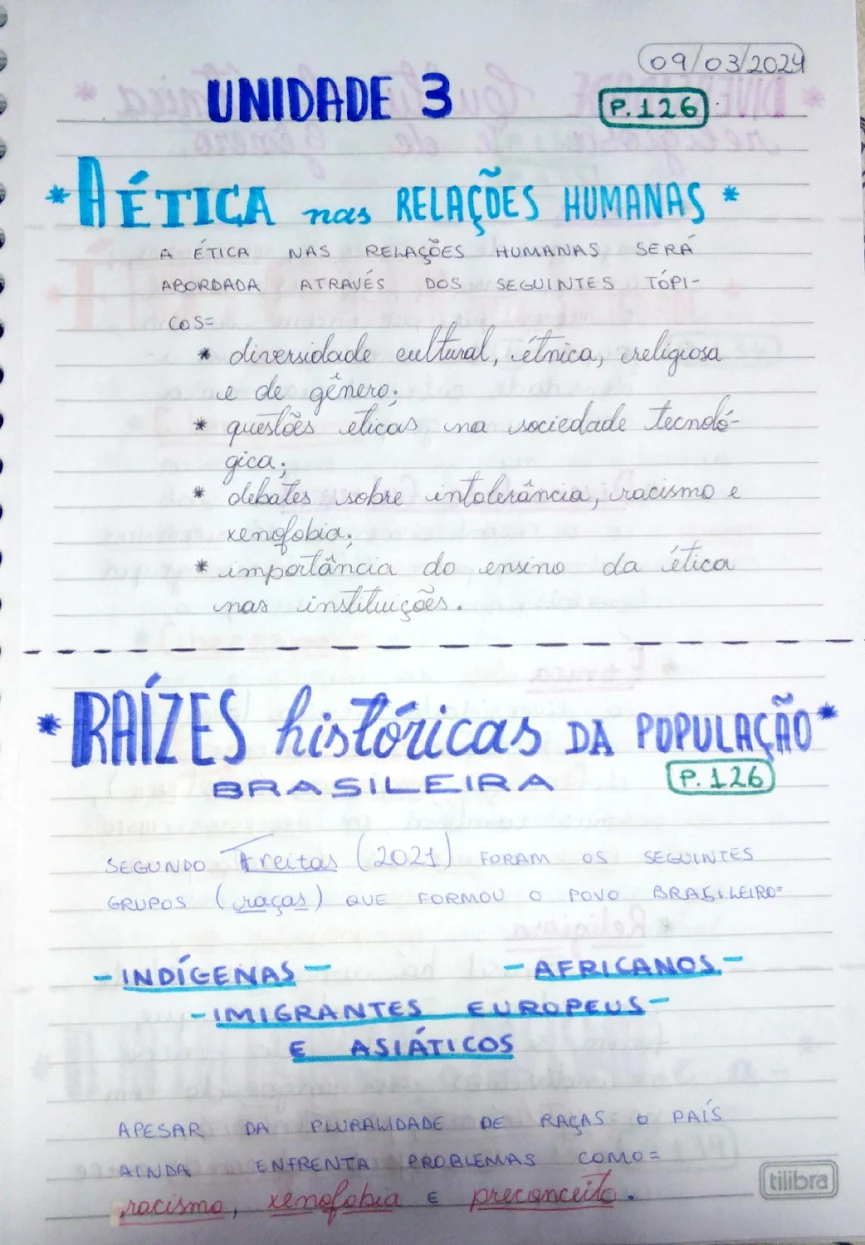 09/03/2024
UNIDADE 3
P.126
* A ÉTICA nas RELAÇÕES HUMANAS *
A ÉTICA NAS RELAÇÕES HUMANAS SERÁ
ABORDADA ATRAVÉS DOS SEGUINTES TÓPI-
COS=
* diversidade cultural, étnica, religiosa
e de gênero;
* questões éticas na sociedade tecnoló-
gica;
* debates sobre intolerância, racismo e
xenofobia;
* importância do ensino da ética
nas instituições.
* RAÍZES históricas DA POPULAÇÃO *
BRASILEIRA
P.126
SEGUNDO Freitas (2021) FORAM OS SEGUINTES
GRUPOS (raças) QUE FORMOU O POVO BRASILEIRO=
- INDÍGENAS - - AFRICANOS -
- IMIGRANTES EUROPEUS -
E ASIÁTICOS
APESAR DA PLURALIDADE DE RAÇAS O PAÍS
AINDA ENFRENTA PROBLEMAS COMO=
racismo, xenofobia E preconceito.
tilibra